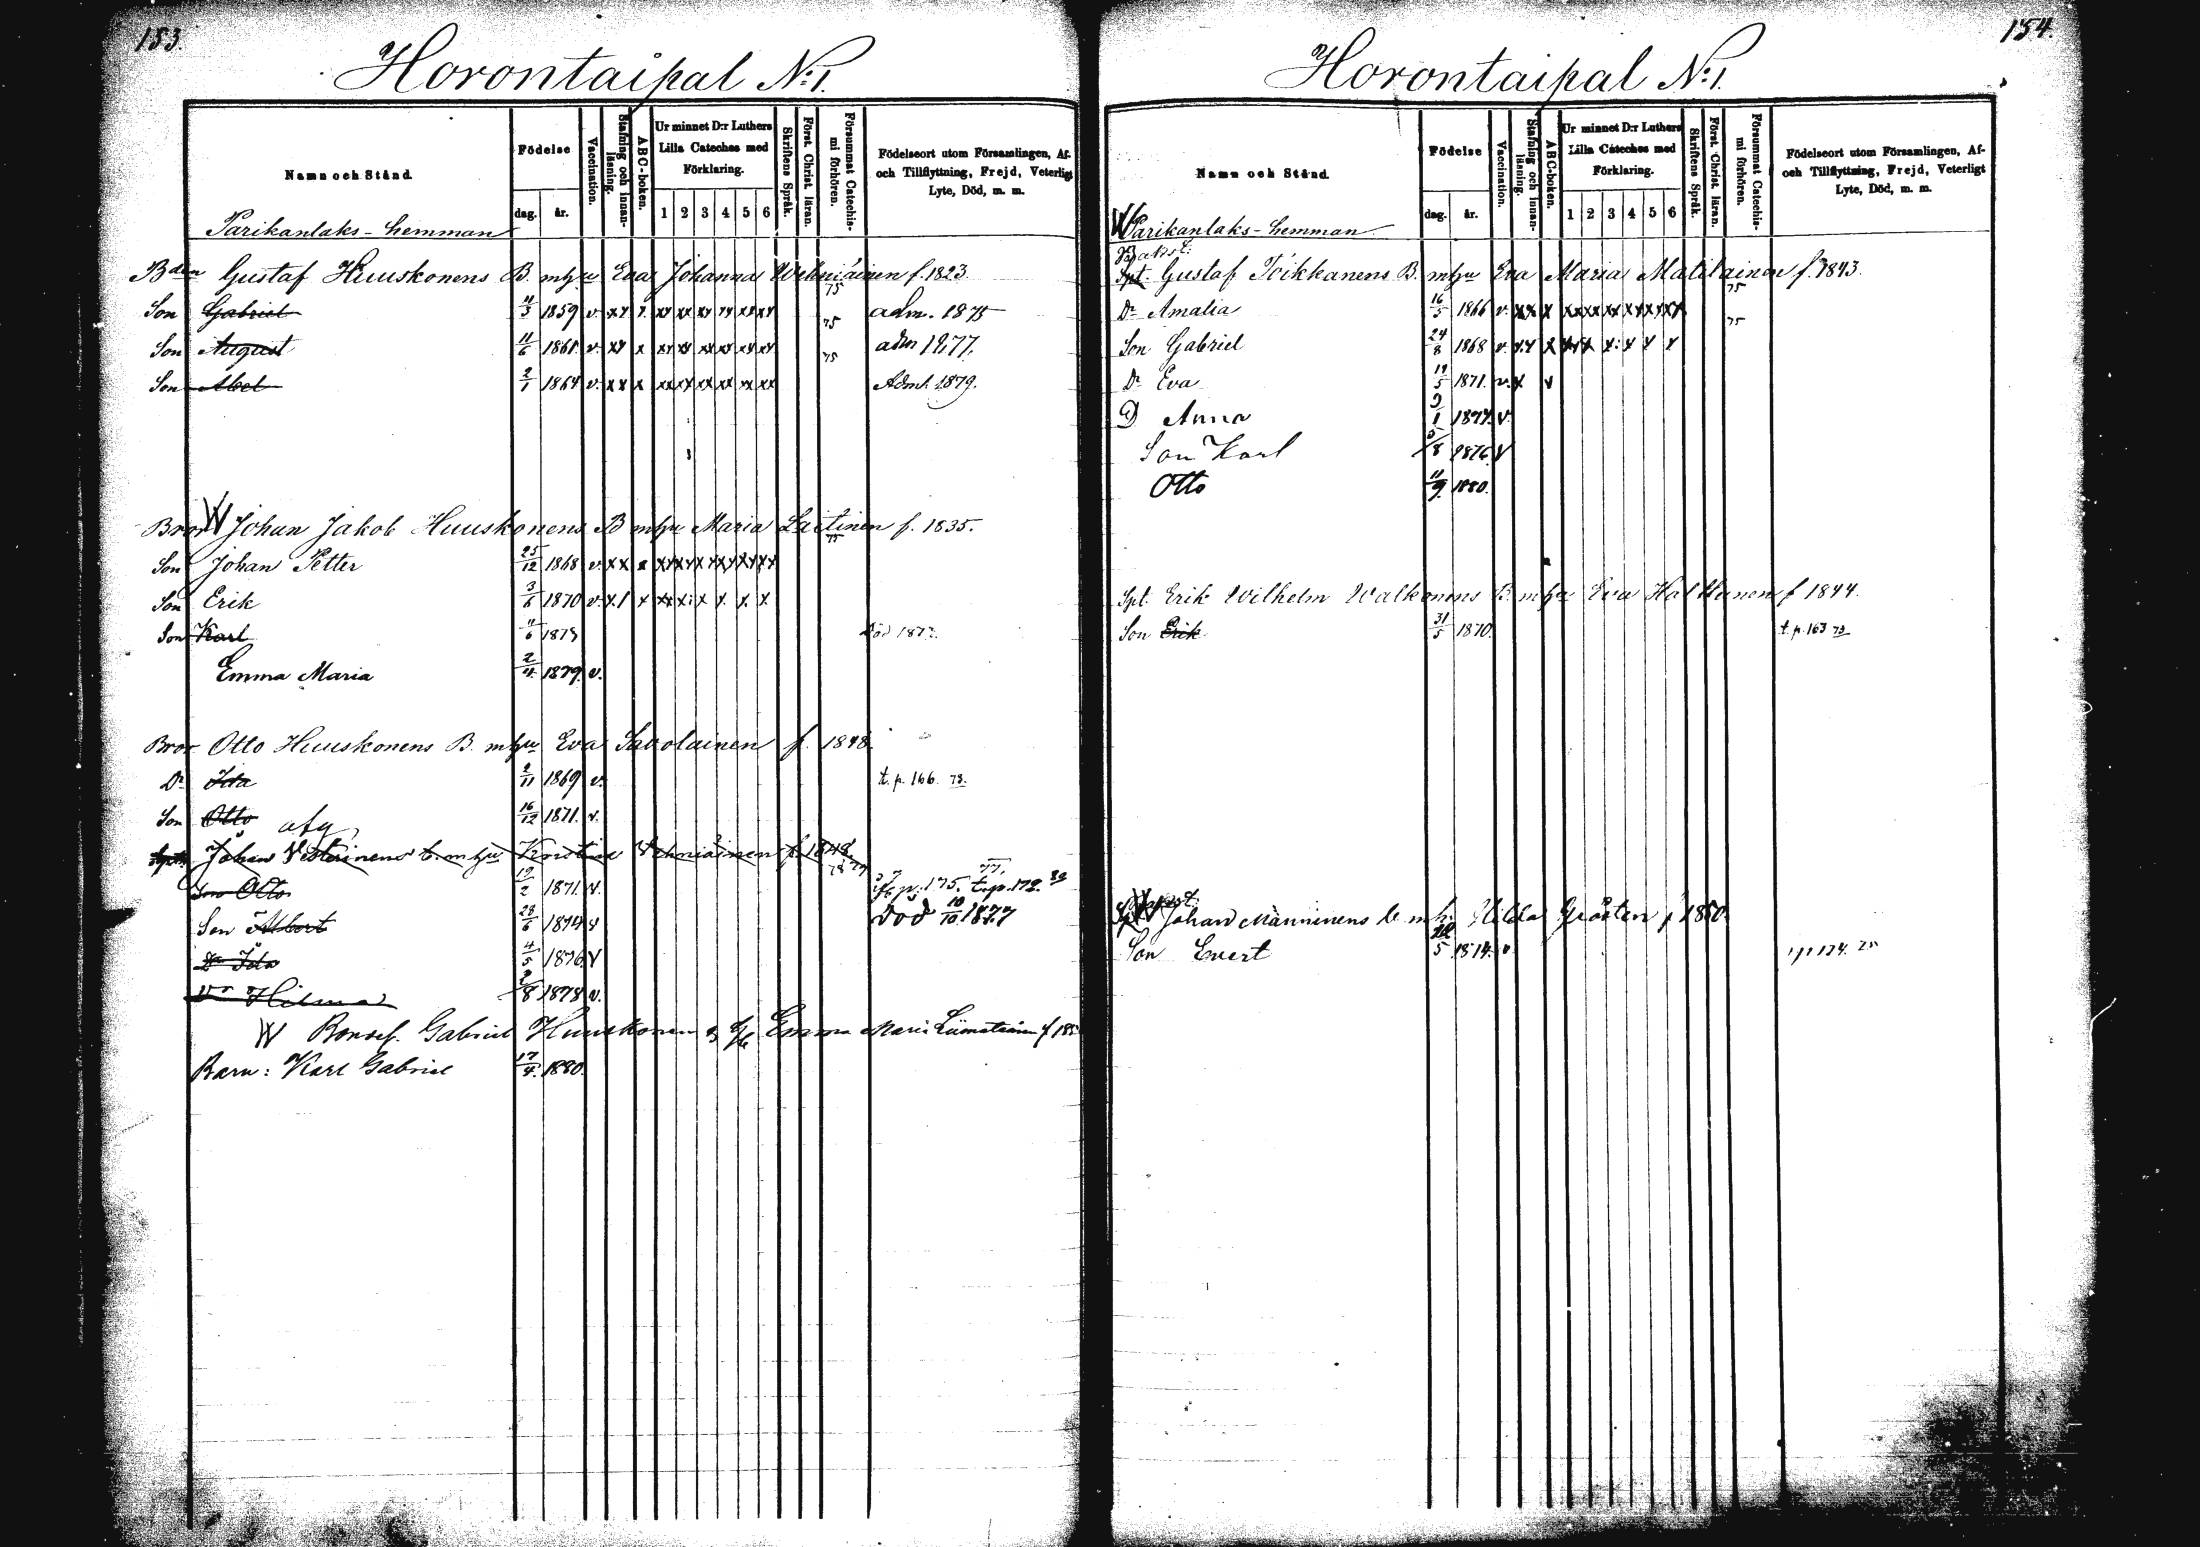 153.
Horontaipal N:1.
Namn och Stånd.
Födelse
dag. år.
Vaccination.
Stafning och innan-läsning.
ABC-boken.
Ur minnet D:r Luthers
Lilla Cateches med
Förklaring.
1 2 3 4 5 6
Skriftens Språk.
Först. Christ. läran.
Försummat Catechis-mi förhören.
Födelseort utom Församlingen, Af-
och Tillflyttning, Frejd, Veterligt
Lyte, Död, m. m.
Parikanlaks-hemman
Bden Gustaf Huuskonens B. m hu Eva Johanna Wehniäinen f. 1823.
Son Gabriel 11/3 1859 v. xx x xx xx xx xx xx xx 75 adm. 1875
Son August 11/6 1861 v. xx x xx xx xx xx xx xx 75 adm 1877.
Son Abel 2/1 1864 v. xx x xx xx xx xx xx xx 75 Admt. 1879.
Bror W Johan Jakob Huuskonens B m hu Maria Laitinen f. 1835.
Son Johan Petter 25/12 1868 v. xx x xx xx xx xx xx xx 75
Son Erik 3/6 1870 v. x / x xx x: x x x x
Son Karl 11/6 1875 Död 187
Emma Maria 2/4 1879. v.
Bror Otto Huuskonens B. m hu Eva Savolainen f. 1848.
Dr Ida 2/11 1869 v. t. p. 166. 73.
Son Otto 16/12 1871. v.
afg
Johan Vesterinens b. m hu Kristina Vehniäinen f. 1848
Son Otto 19/2 1871. v. p. 175. t. p. 172.
Son Albert 28/6 1874 v död 10/10 1877
Dr Ida 4/5 1876 v
Dr Hilma 2/8 1878 v.
W Bonsf. Gabriel Huuskonen & Emma Maria Liimatainen f 185
Barn: Karl Gabriel 17/4. 1880.
154.
Horontaipal N:1.
Namn och Stånd.
Födelse
dag. år.
Vaccination.
Stafning och innan-läsning.
ABC-boken.
Ur minnet D:r Luthers
Lilla Cateches med
Förklaring.
1 2 3 4 5 6
Skriftens Språk.
Först. Christ. läran.
Försummat Catechis-mi förhören.
Födelseort utom Församlingen, Af-
och Tillflyttning, Frejd, Veterligt
Lyte, Död, m. m.
W Parikanlaks-hemman
Spt. Gustaf Toikkanens B. m hu Eva Maria Matilainen f. 1843.
Dr Amalia 16/5 1866 v. xx x xx xx xx xx xx xx 75
Son Gabriel 24/8 1868 v. x.x x xxx x: x x x 75
Dr Eva 19/5 1871. v. x v
D Anna 9/1 1874. v.
Son Karl 5/8 1876 v
Otto 11/9. 1880.
Spt. Erik Wilhelm Walkonens B. m hu Eva Halttunen f 1844.
Son Erik 31/5 1870. t. p. 163 73
W Johan Männinens b. m h: Hilda Grösten f 1850.
Son Evert 5 1874. v. 174. 75